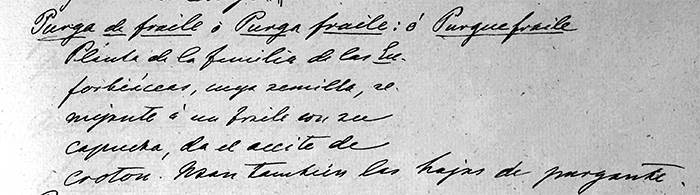 Purga de fraile ó Purga fraile: ó Purguefraile
Planta de la familia de las Eu-
forbiáceas, cuya semilla, se-
mejante á un fraile con su
capucha, da el aceite de
croton. Usan también las hojas de purgante.